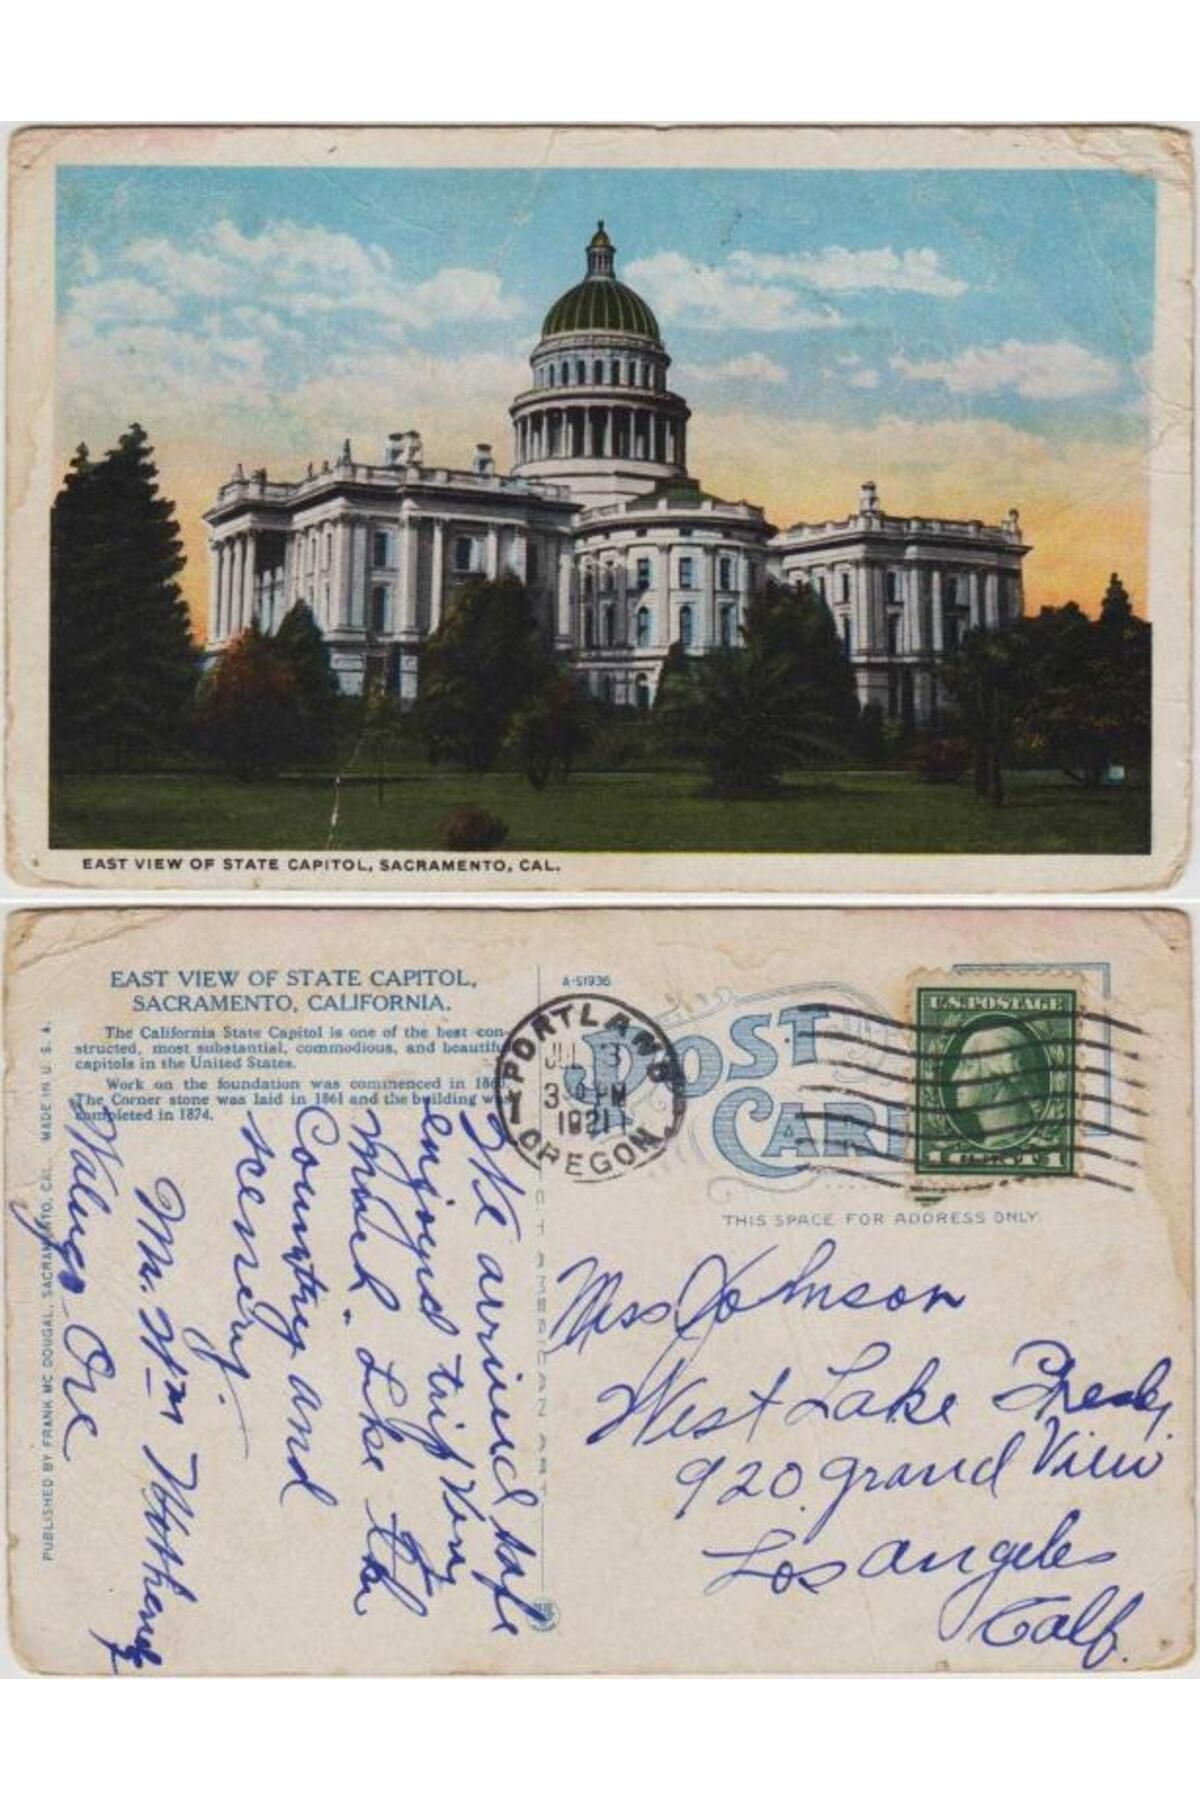 EAST VIEW OF STATE CAPITOL, SACRAMENTO, CAL.
EAST VIEW OF STATE CAPITOL,
SACRAMENTO, CALIFORNIA.
The California State Capitol is one of the best con-
structed, most substantial, commodious, and beautiful
capitols in the United States.
Work on the foundation was commenced in 1860.
The Corner stone was laid in 1861 and the building was
completed in 1874.
PUBLISHED BY FRANK MC DOUGAL, SACRAMENTO, CAL. MADE IN U. S. A.
We arrived safe
enjoyed trip very
much. Like the
Country and
scenery.
Mr. Wm
Ore
A-51936
POST
CARD
PORTLAND
JUL 3
3 PM
1921
OREGON
1
U.S. POSTAGE
1 1
THIS SPACE FOR ADDRESS ONLY.
AMERICAN ART
Miss Johnson
West Lake
920 Grand View
Los Angeles
Calf.